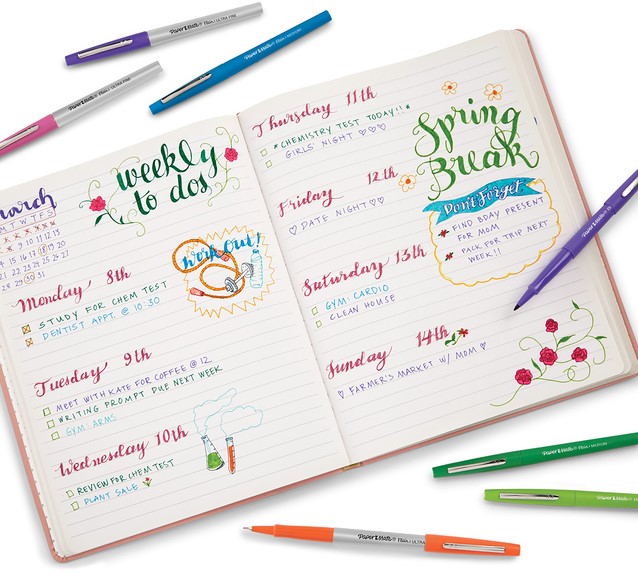 weekly
to dos
arch
M T W T F S
9 10 11 12 13
30 31
Monday 8th
STUDY FOR CHEM TEST
DENTIST APPT. @ 10:30
work out!
Tuesday 9th
MEET WITH KATE FOR COFFEE @ 12
WRITING PROMPT DUE NEXT WEEK
GYM: ARMS
Wednesday 10th
REVIEW FOR CHEM TEST
PLANT SALE
Thursday 11th
*CHEMISTRY TEST TODAY!!*
GIRLS' NIGHT ♡♡♡
Friday 12th
♡ DATE NIGHT ♡♡
Saturday 13th
GYM: CARDIO
CLEAN HOUSE
Sunday 14th
♡ FARMER'S MARKET W/ MOM ♡
Spring
Break
Don't Forget
FIND BDAY PRESENT
FOR MOM
PACK FOR TRIP NEXT
WEEK!!
Paper Mate Flair ULTRA FINE
Paper Mate Flair ULTRA FINE
Paper Mate Flair MEDIUM
Paper Mate
Paper Mate Flair MEDIUM
Paper Mate Flair
Paper Mate Flair ULTRA